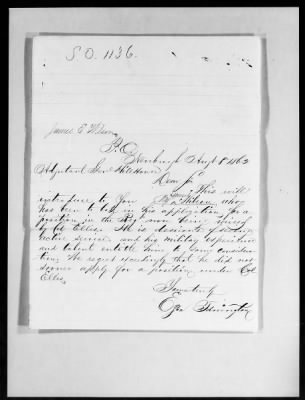 S.O. 1136.
James E. Wilson
P.O.
Edinburgh Augt 8 1862
Adjutant Genl Hillhouse
Dear Sir
This will
introduce to You Wilson who
has been to in his application for a
position in the Rgt now being raised
by Col Ellis. He is desirous of seeing
active service and his military experience
and talent entitle him to some consideration
We regret exceedingly that he did not
sooner apply for a position under Col
Ellis.